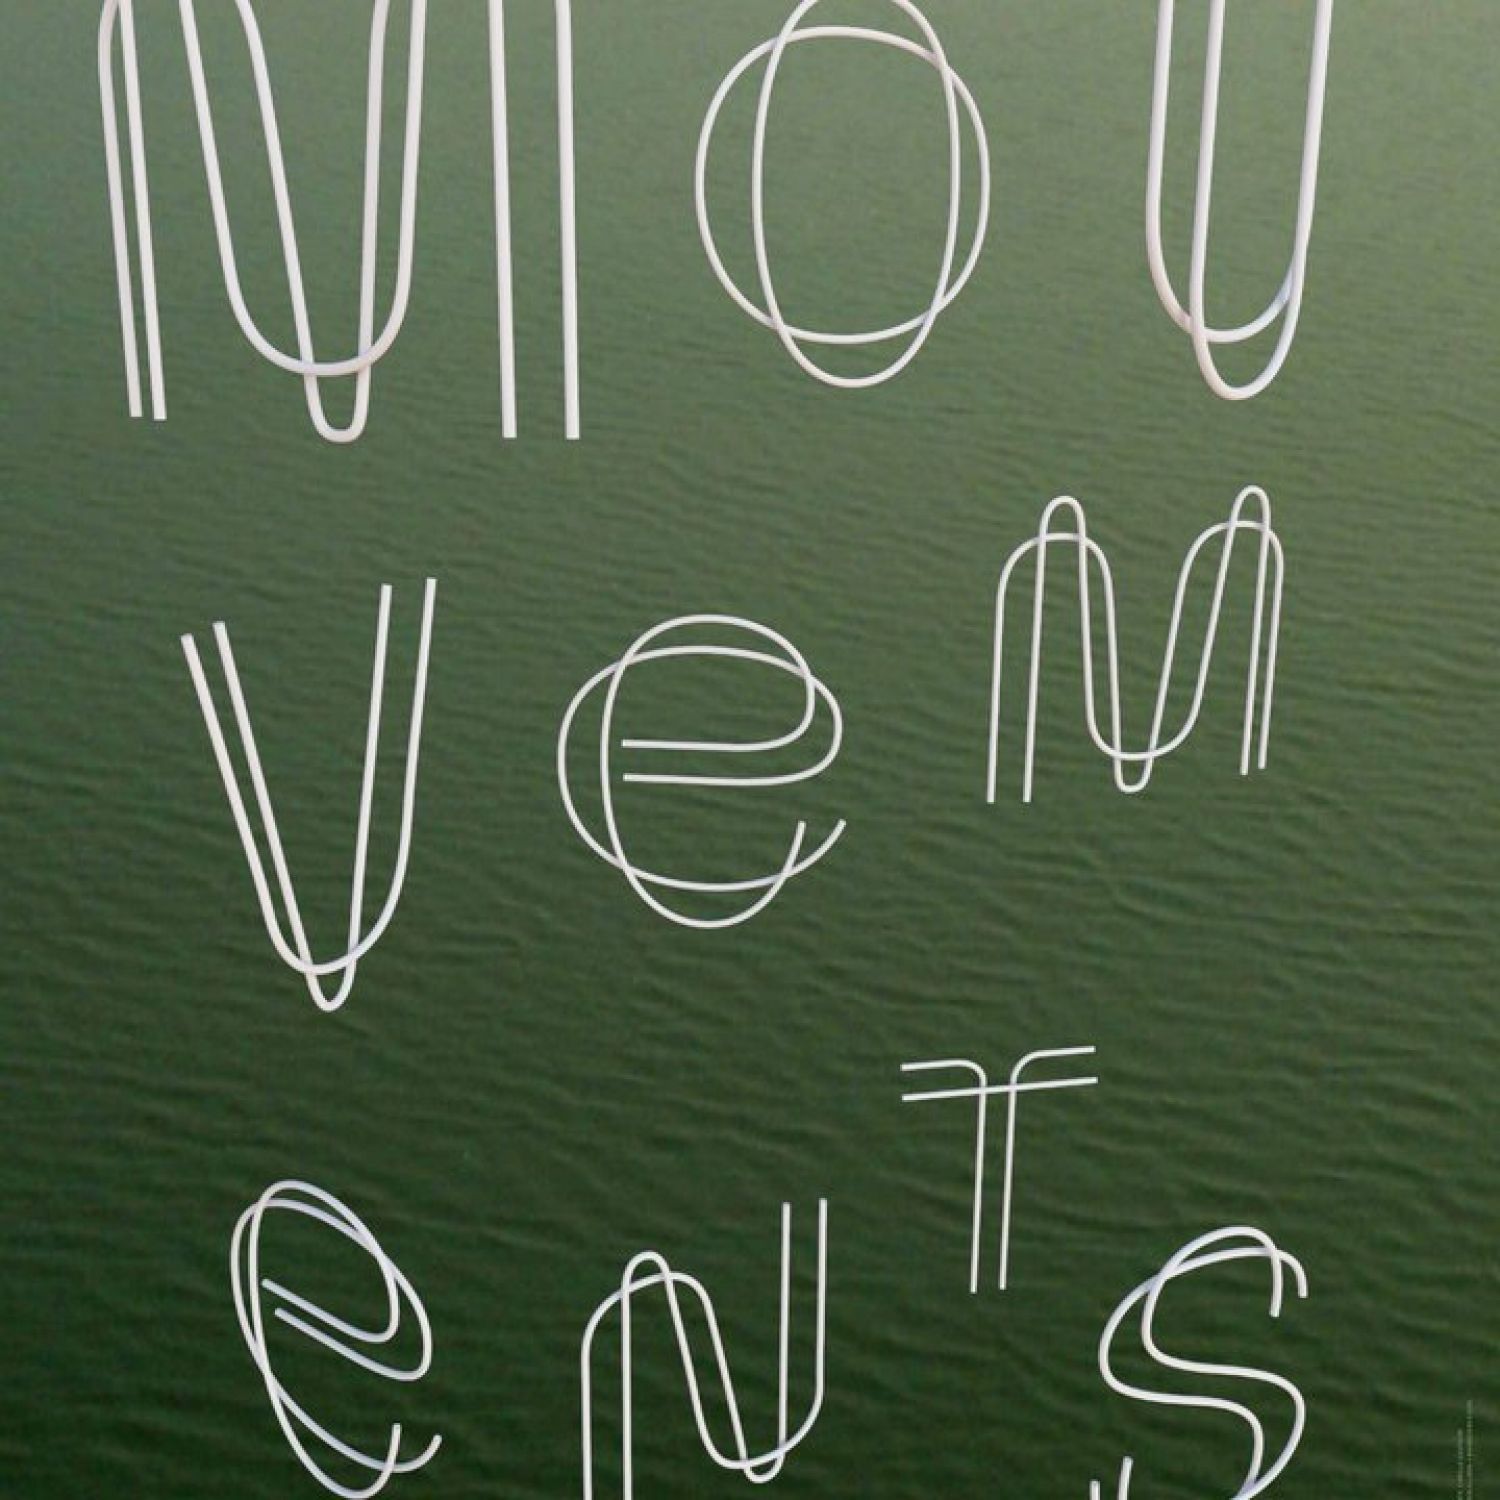 Mou
veM
eNTs